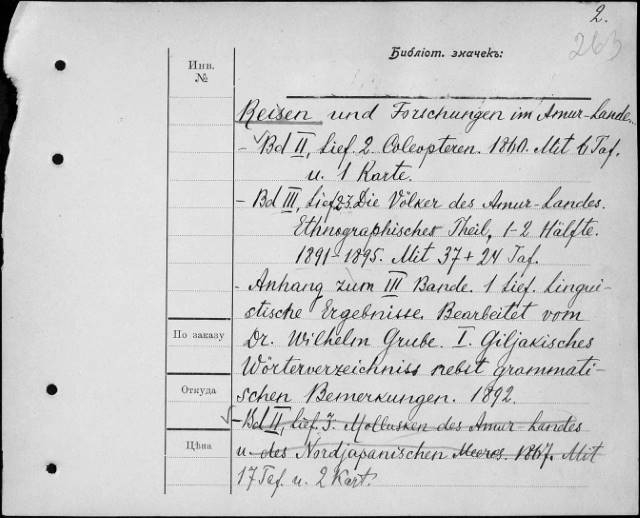 2.
263
Библіот. значекъ:
Инв.
№
Reisen und Forschungen im Amur-Lande...
- Bd II, Lief. 2. Coleopteren. 1860. Mit 6 Taf.
u. 1 Karte.
- Bd III, Lief 2.3. Die Völker des Amur-Landes.
Ethnographischer Theil, 1-2 Hälfte.
1891-1895. Mit 37 + 24 Taf.
- Anhang zum III Bande. 1 Lief. Lingui-
stische Ergebnisse. Bearbeitet vom
По заказу
Dr. Wilhelm Grube. I. Giljakisches
Wörterverzeichniss nebst grammati-
Откуда
schen Bemerkungen. 1892.
- Bd II, Lief. 3. Mollusken des Amur-Landes
Цѣна
u. des Nordjapanischen Meeres. 1867. Mit
17 Taf. u. 2 Kart.